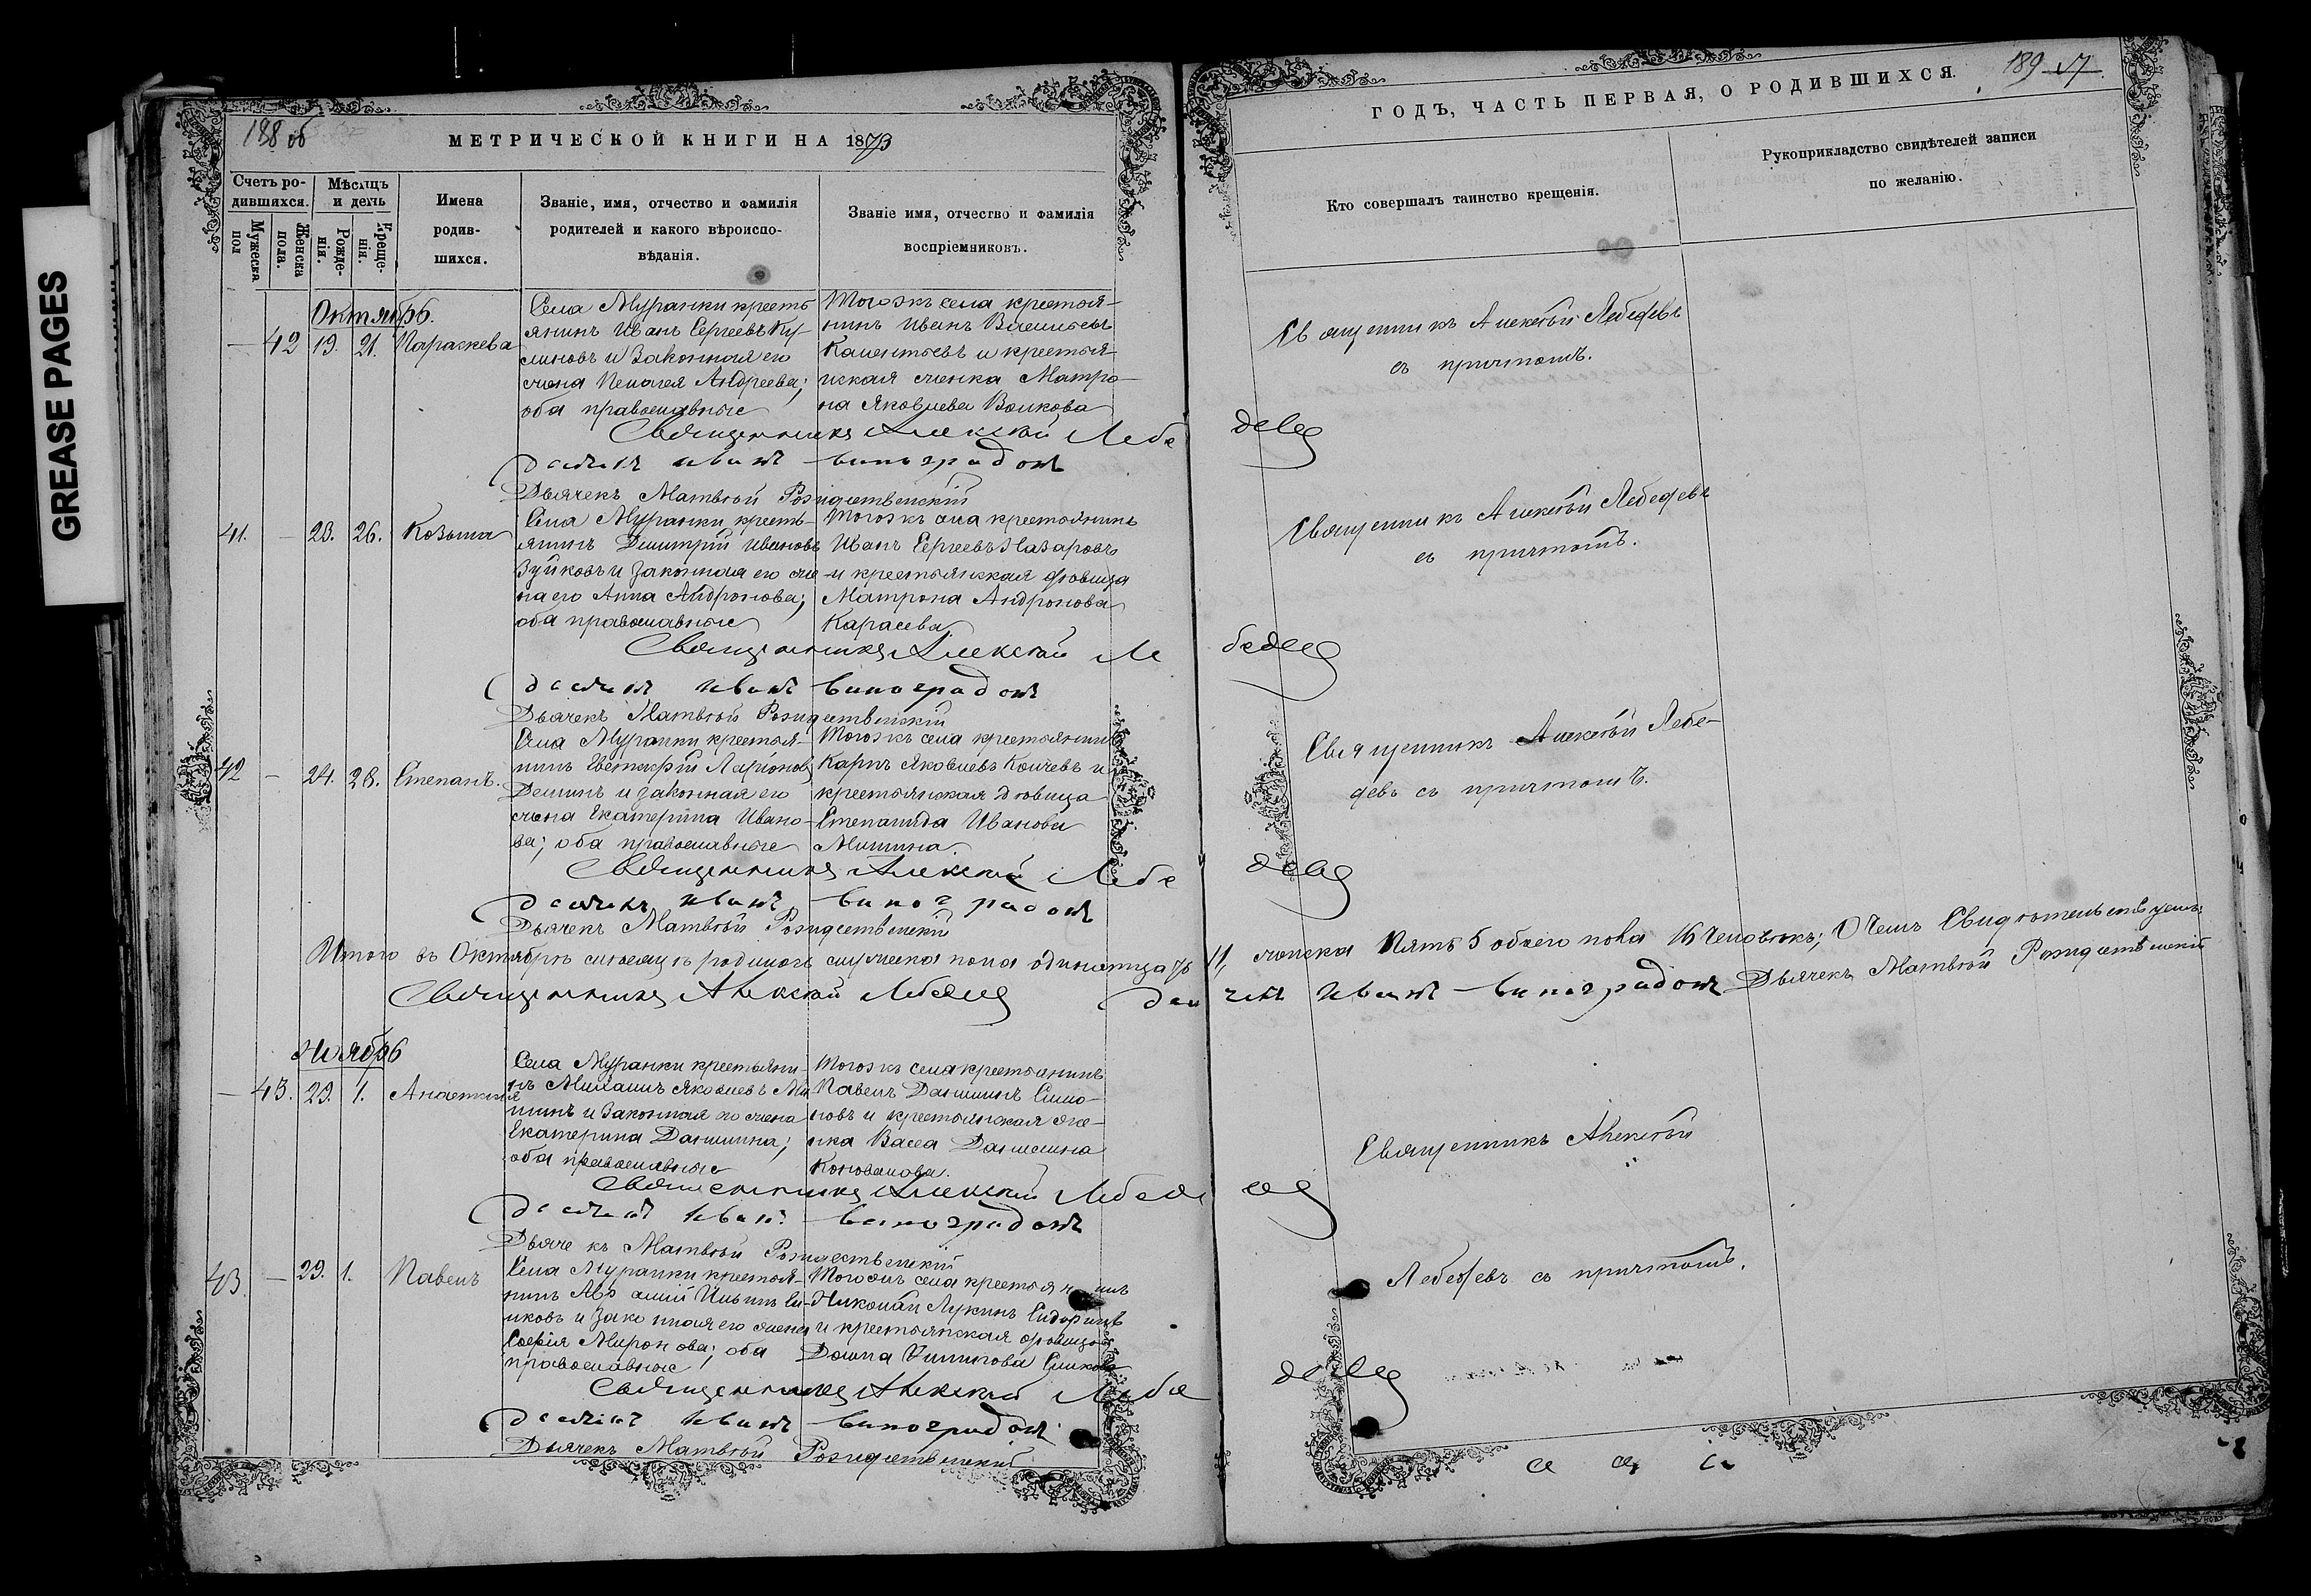 GREASE PAGES
188 об
МЕТРИЧЕСКОЙ КНИГИ НА 1873
Счетъ ро-
дившихся.
Мужеска пол
Женска пола.
Мѣсяцъ
и день
Рожде-
нія.
Креще-
нія.
Имена
родив-
шихся.
Званіе, имя, отчество и фамилія
родителей и какого вѣроиспо-
вѣданія.
Званіе имя, отчество и фамилія
воспріемниковъ.
Октябрь.
— 42 19. 21. Параскева
Села Муранки кресть
янинъ Иванъ Сергеевъ
и законная его
жена Пелагея Андреева;
оба православные
Тогожъ села крестья-
нинъ Иванъ Васильевъ
и крестья-
нская женка Матро-
на Яковлева Волкова
Священникъ Алексѣй Лебе
Иванъ Виноградовъ
Дьячекъ Матвѣй Рождественскій
41. — 23. 26. Козьма
Села Муранки кресть-
янинъ Димитрій Ивановъ
Зуйковъ и законная его же
на его Анна Андронова;
оба православные
Тогожъ села крестьянинъ
Иванъ Сергеевъ Назаровъ
и крестьянская дѣвица
Матрона Андронова
Карасева
Священникъ Алексѣй Ле
Иванъ Виноградовъ
Дьячекъ Матвѣй Рождественскій
42 — 24. 28. Степанъ.
Села Муранки крестья-
нинъ Евстафій Ларіоновъ
Деминъ и законная его
жена Екатерина Ивано-
ва; оба православные
Тогожъ села крестьянинъ
Карпъ Яковлевъ и
крестьянская дѣвица
Степанида Иванова
Мишина.
Священникъ Алексѣй Лебе
Иванъ Виноградовъ
Дьячекъ Матвѣй Рождественскій
Итого въ Октябрѣ мѣсяцѣ родилось мужеска пола одинатцать
Священникъ Алексѣй Лебедевъ
Ноябрь
— 43. 29. 1. Анастасія
Села Муранки крестьяни-
нъ Яковлевъ Ми
шинъ и законная его жена
Екатерина Данилина;
оба православные
Тогожъ села крестьянинъ
Павелъ Данилинъ Симо-
новъ и крестьянская же-
нка Васса Данилина
Коновалова.
Священникъ Алексѣй Лебед
Иванъ Виноградовъ
Дьячекъ Матвѣй Рождественскій
43. — 29. 1. Павелъ
Села Муранки крестья-
нинъ Ильинъ Си-
лковъ и законная его жена
Софія Миронова; оба
православные
Тогожъ села крестьянинъ
Николай Лукинъ
и крестьянская дѣвица
Домна
Священникъ Алексѣй Лебе
Иванъ Виноградовъ
Дьячекъ Матвѣй Рождественскій
ГОДЪ, ЧАСТЬ ПЕРВАЯ, О РОДИВШИХСЯ.
189
Кто совершалъ таинство крещенія.
Рукоприкладство свидѣтелей записи
по желанію.
Священникъ Алексѣй Лебедевъ
съ причтомъ.
девъ
Священникъ Алексѣй Лебедевъ
съ причтомъ.
бедевъ
Священникъ Алексѣй Лебе-
девъ съ причтомъ.
девъ
11, женска пять 5 обоего пола 16 человѣкъ; О чемъ свидѣтельствуемъ:
Иванъ Виноградовъ Дьячекъ Матвѣй Рождественскій
Священникъ Алексѣй
евъ
Лебедевъ съ причтомъ.
девъ